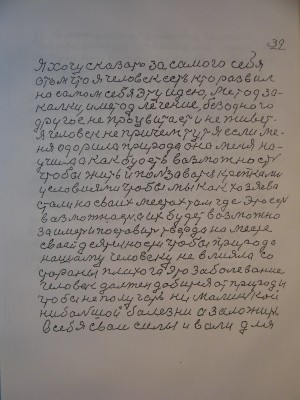 39
Я хочу сказать за самого себя
что я человек есть кто развил
на самом себя эту идею, метод за-
калки, и метод лечение, без одного
другое не процвитает и не живет.
Я человек не причем тут я если ме-
ня одорила природа она меня на-
учила как будть возможность
чтобы жить и ползавать крепкими
условиями чтобы мы как хозяева
стали на своих местах там где это есть
возможность их будет возможно
твердо на месте
своей сятилности чтобы природа
нашаму человеку не влияла со
стораны плихого это заболевание
человек должен добится от природы
чтобы не получать ни малинкой
ни балшой болезни а заложить
в себя сваи силы и воли для